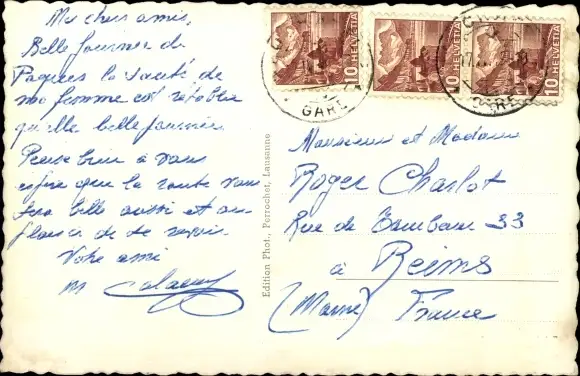 Mes chers amis,
Belle journée de
Paques la santé de
ma femme est rétablie
qu'elle belle journée
Pense bien à vous
espère que la route vous
sera belle aussi et au
plaisir de se revoir
Votre ami
M
Edition Phot. Perrochet, Lausanne
HELVETIA 10
HELVETIA 10
HELVETIA 10
GARE
GARE
Monsieur et Madame
Roger Charlot
Rue de 33
à Reims
(Marne) France